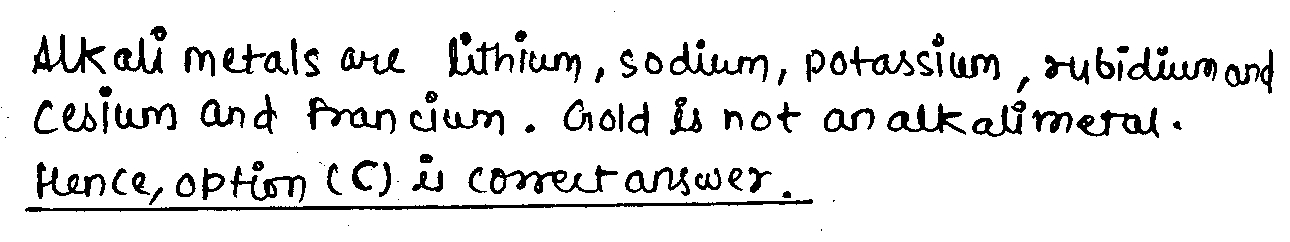 Alkali metals are lithium, sodium, potassium, rubidium and
Cesium and Francium. Gold is not an alkali metal.
Hence, option (C) is correct answer.